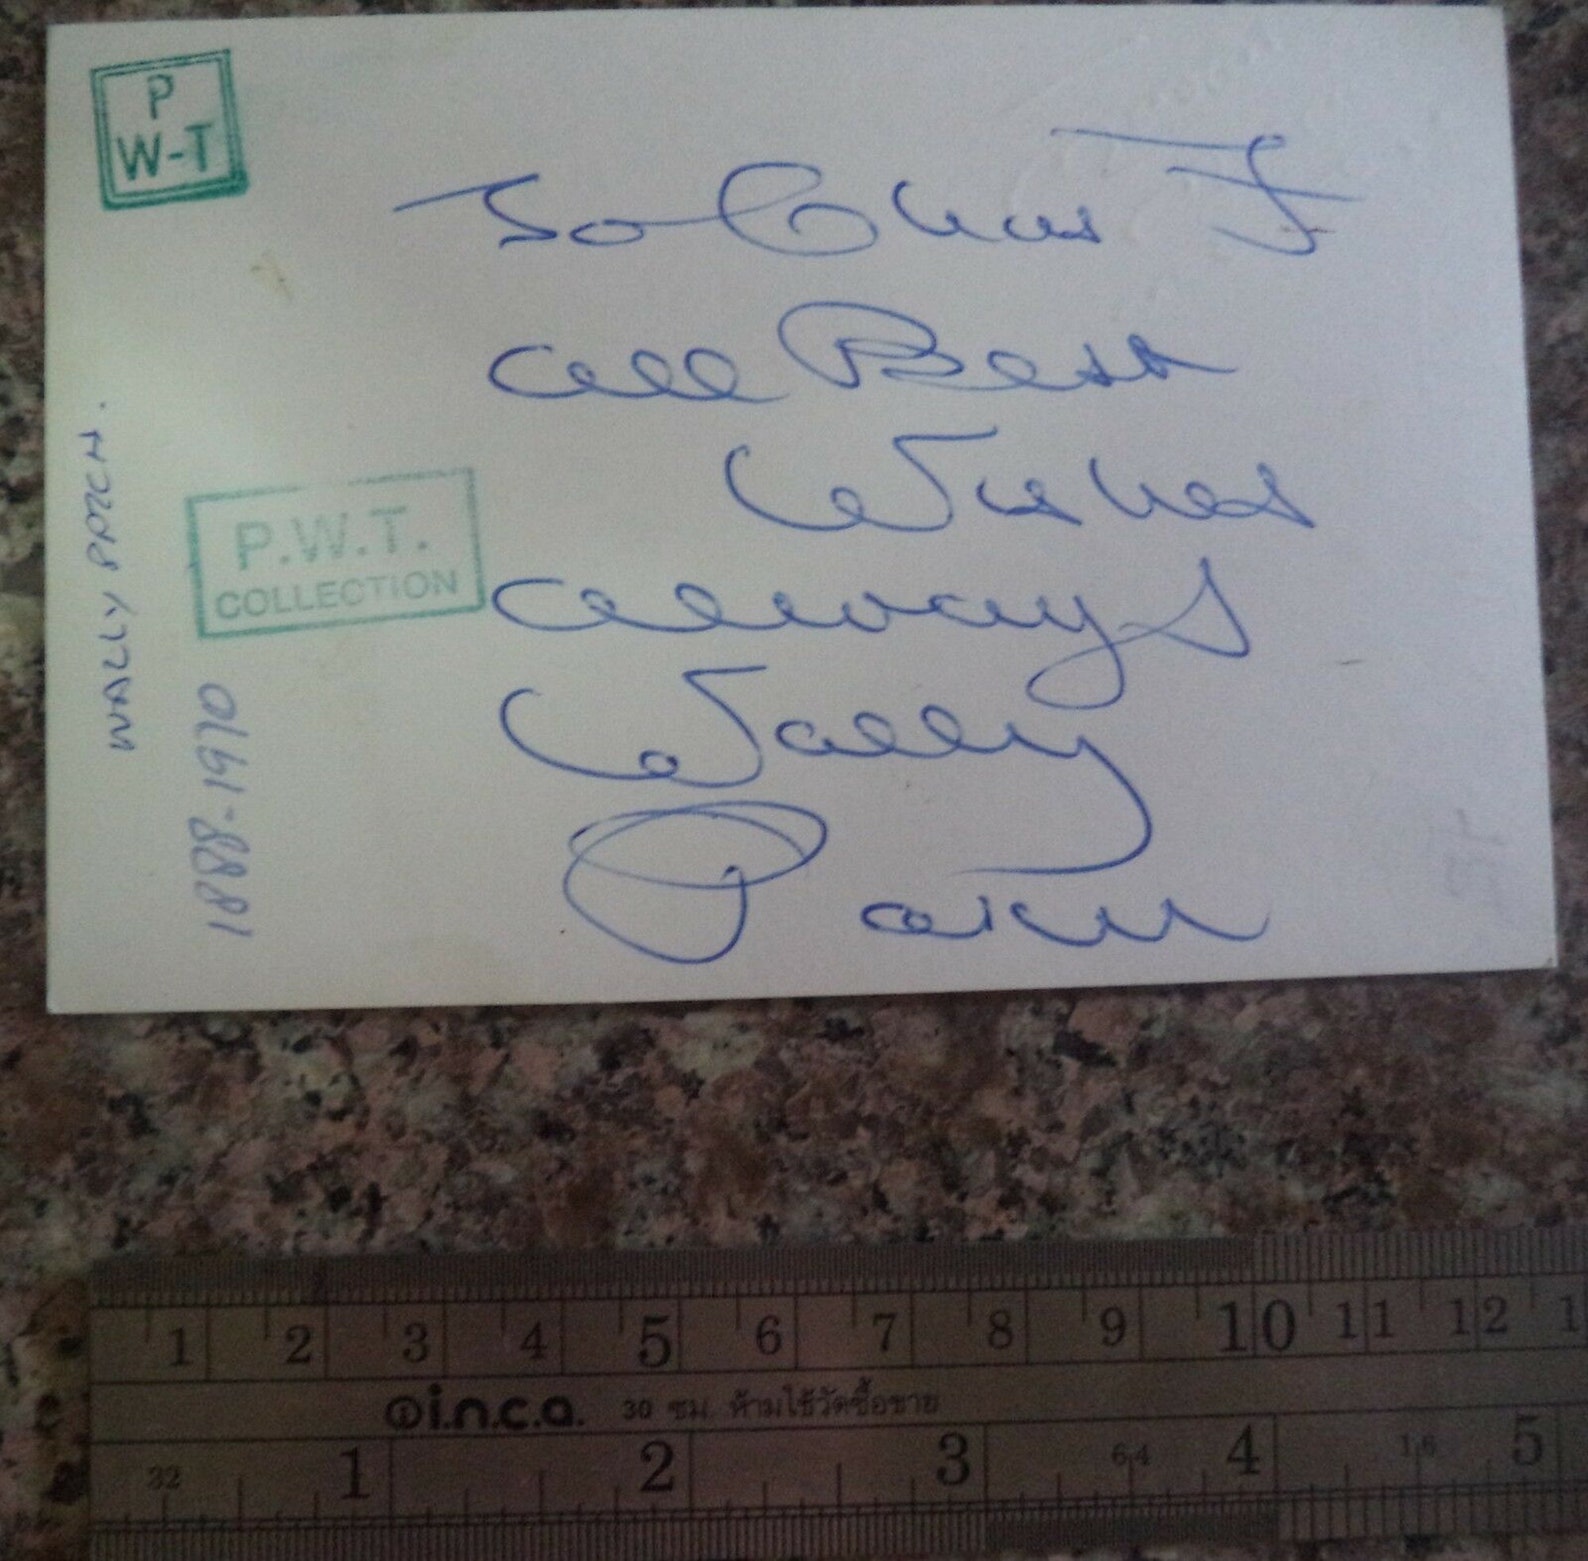 P
W-T
To Chas F
All Best
Wishes
Always
Wally
Patch
P.W.T.
COLLECTION
WALLY PATCH.
1888-1970
1 2 3 4 5 6 7 8 9 10 11 12 1
i.n.c.a. 30 ซม. ห้ามใช้วัดซื้อขาย
32 1 2 3 64 4 16 5